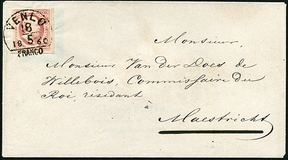 VENLO
18 60
FRANCO
Monsieur,
Monsieur Van der Does de
Willebois, Commissaire du
Roi, résidant
à
Maestricht